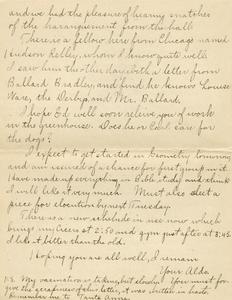 and we had the pleasure of hearing snatches
of the harangement from the hall.
There is a fellow here from Chicago named
Hudson Kelley, whom I know quite well.
I saw him the other day with a letter from
Ballard Bradley, and find he knows Louise
Ware, the Derby, and Mr. Ballard.
I hope Ed will soon relieve you of work
in the greenhouse. Does he or Carl care for
the dogs?
I expect to get started in Geometry tomorrow
and am assured of a chance for first group in it.
Have made up everything in Bible study and think
I will like it very much. Must also elect a
piece for elocution by next Tuesday.
There is a new schedule in use now which
brings my Greens at 2:50 and gym just after at 3:45.
I like it better than the old.
Hoping you are all well, I remain
Your Alda
P.S. My vaccination is taking, but slowly. You must for-
give the scrawl of this letter, it was written in haste.
Remember me to Tante Anna.